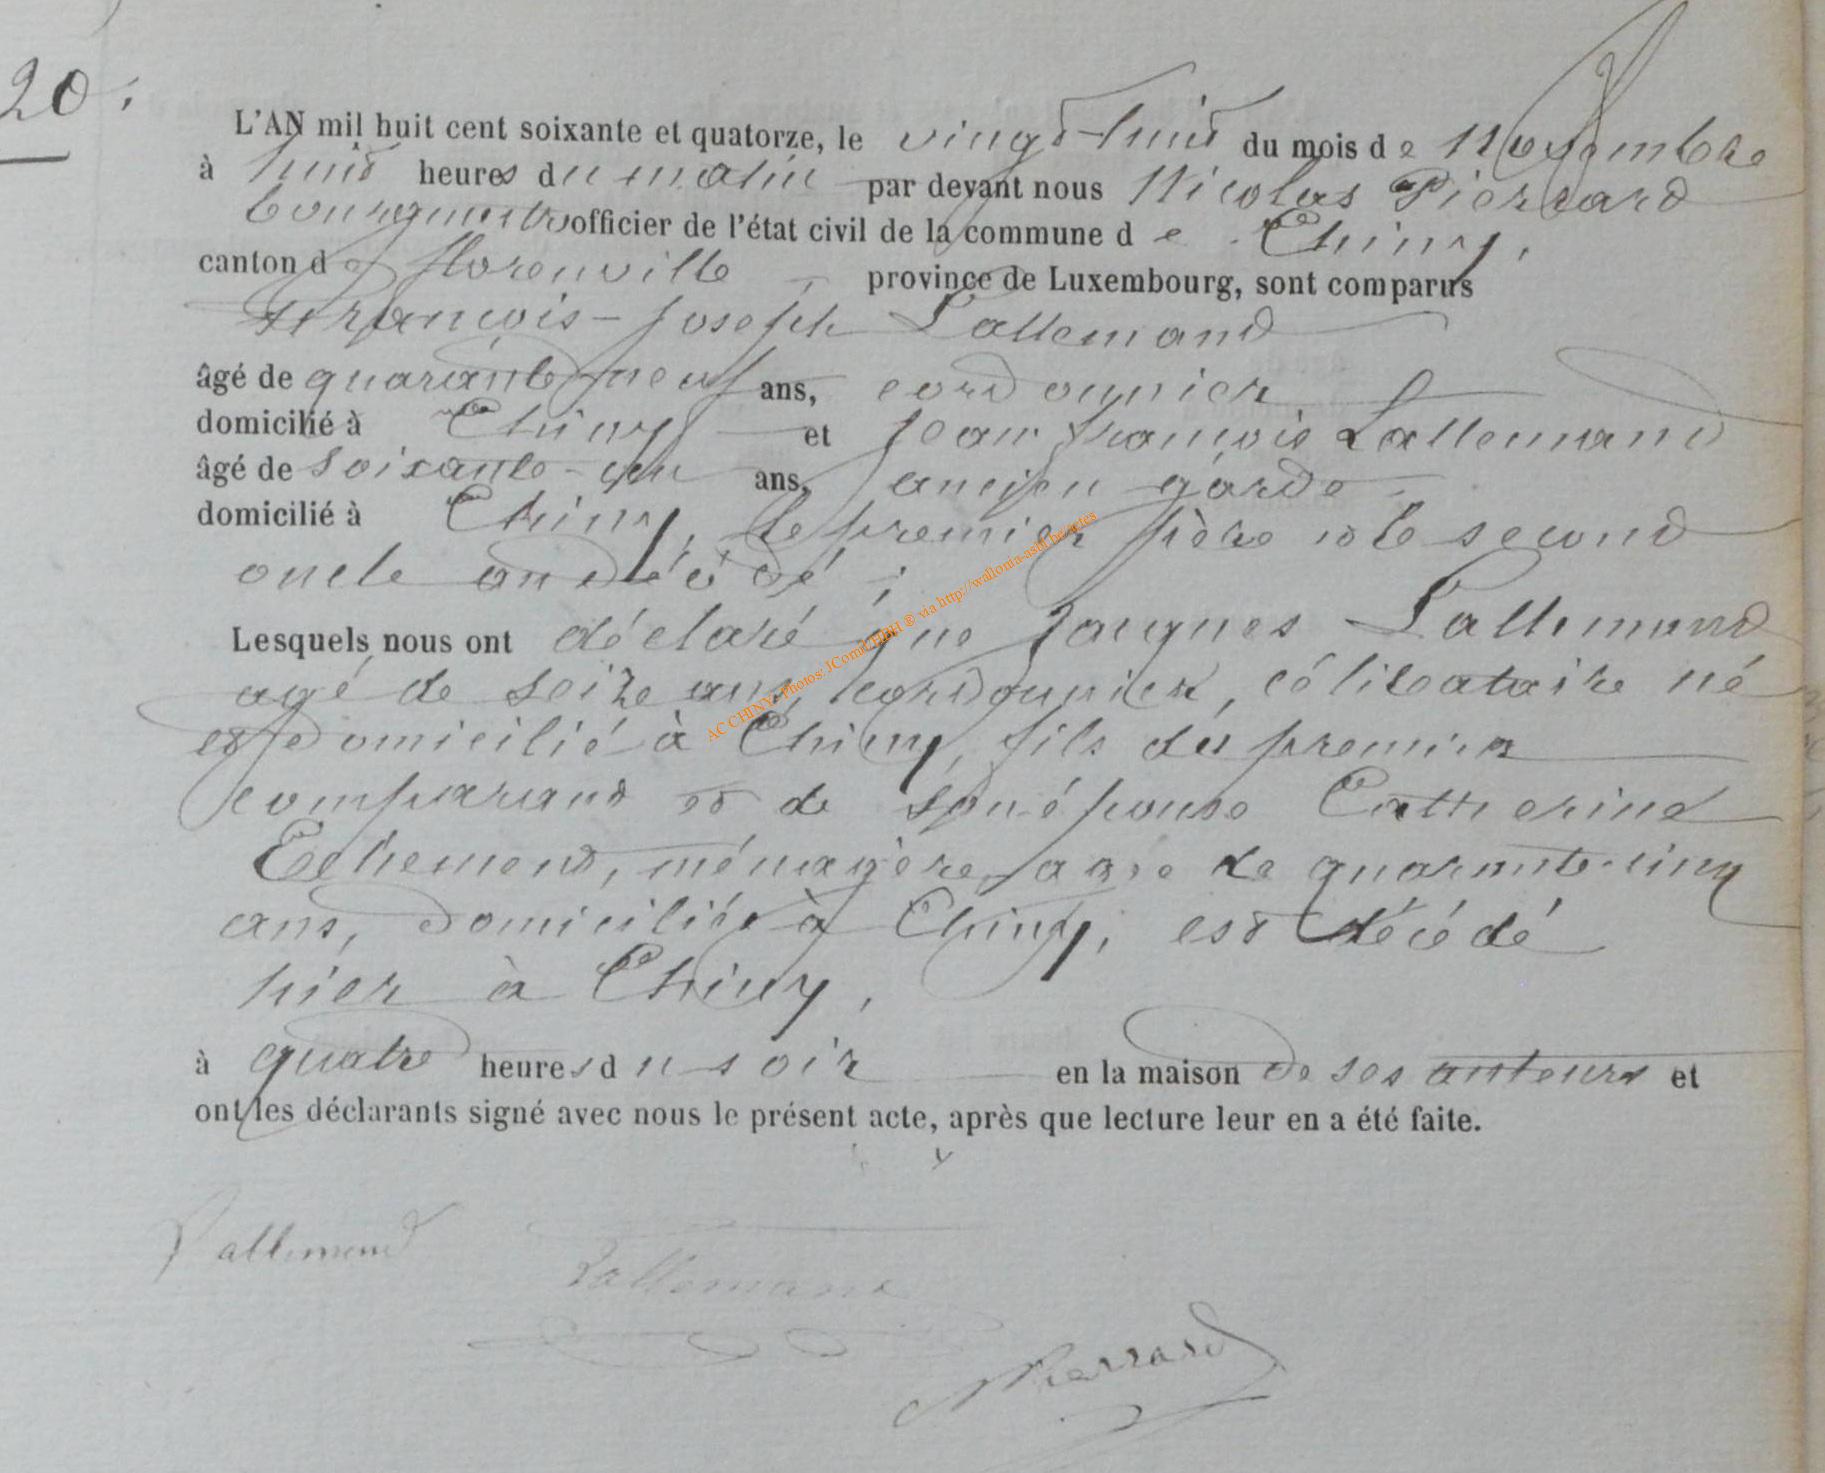 20.
L'AN mil huit cent soixante et quatorze, le vingt-huit du mois de Novembre
à huit heures du matin par devant nous Nicolas Pierrard
bourgmestre officier de l'état civil de la commune de Chiny,
canton de florenville province de Luxembourg, sont comparus
françois-joseph Lallemand
âgé de quarante-neuf ans, cordonnier
domicilié à Chiny et jean françois Lallemand
âgé de soixante-un ans, ancien garde
domicilié à Chiny, le premier père et le second
oncle au décédé;
Lesquels nous ont déclaré que jacques Lallemand
agé de seize ans, cordonnier, célibataire né
et domicilié à Chiny, fils du premier
comparant et de son épouse Catherine
Echement, ménagère, agée de quarante-cinq
ans, domiciliée à Chiny, est décédé
hier à Chiny,
à quatre heures du soir en la maison de ses auteurs et
ont les déclarants signé avec nous le présent acte, après que lecture leur en a été faite.
Lallemand
Lallemand
NPierrard
AC CHINY - Photos: JComii EHBH ® via http://wallonia-asbl.be/actes